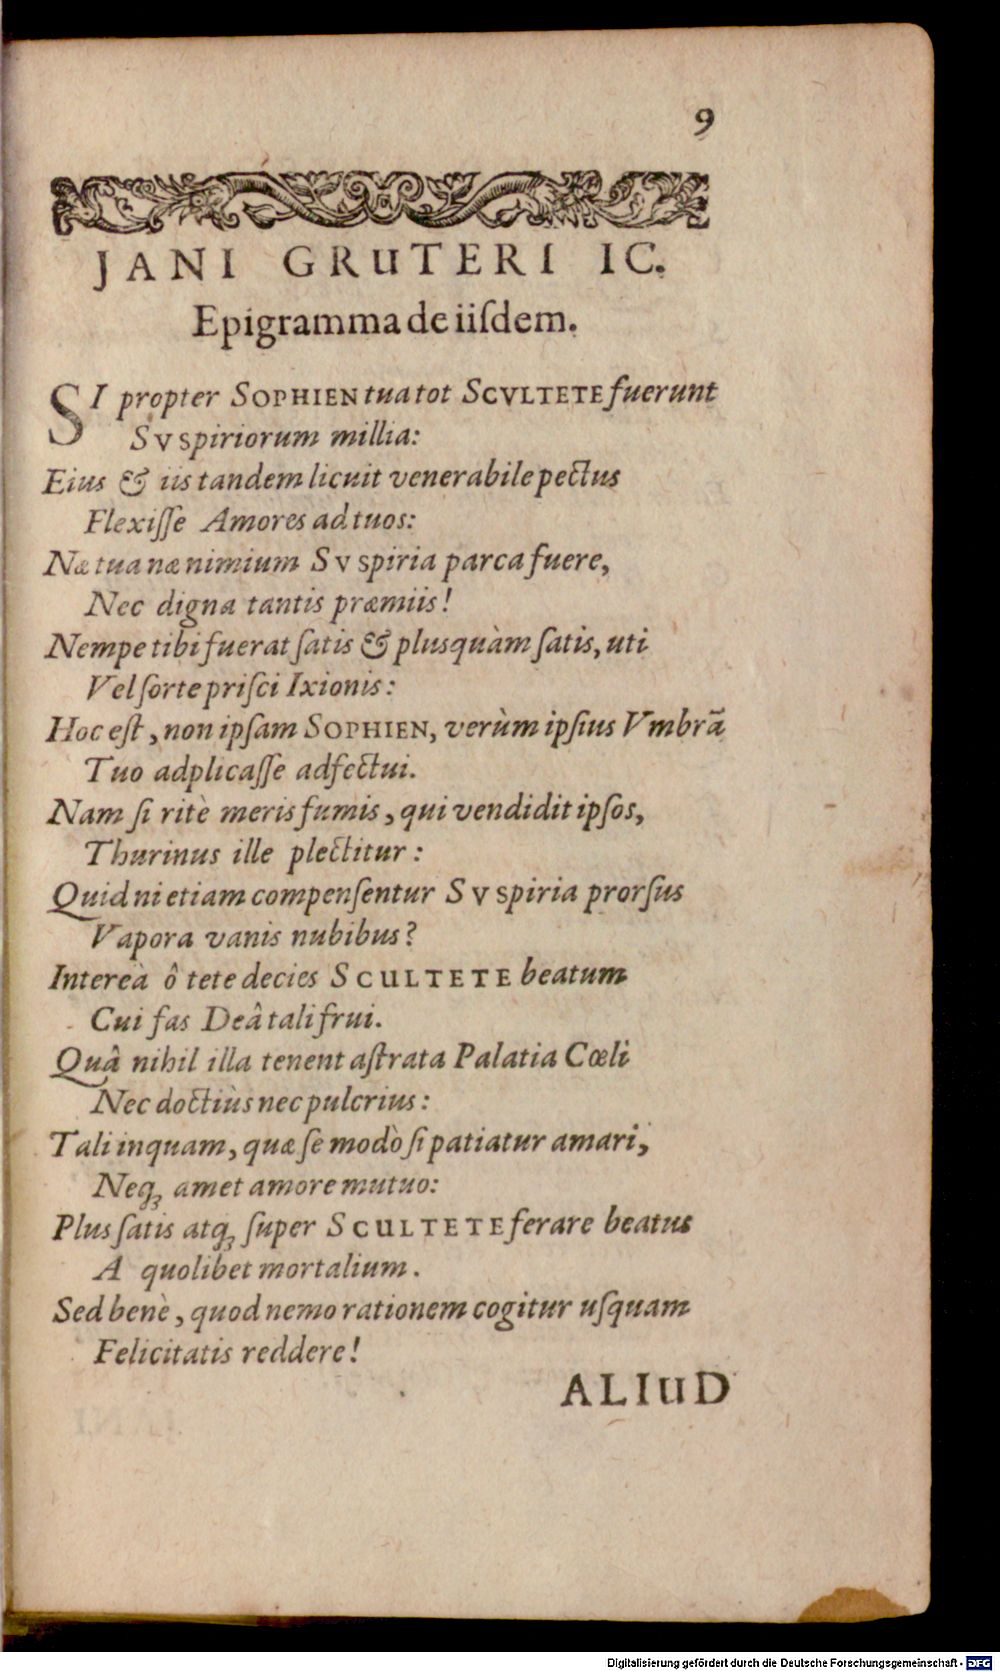 9
JANI GRUTERI IC.
Epigramma de iiſdem.
SI propter SOPHIEN tua tot SCVLTETE fuerunt
SVſpiriorum millia:
Eius & iis tandem licuit venerabile pectus
Flexiſſe Amores ad tuos:
Næ tua næ nimium SVſpiria parca fuere,
Nec digna tantis præmiis!
Nempe tibi fuerat ſatis & plusquàm ſatis, uti
Vel ſorte priſci Ixionis:
Hoc eſt, non ipſam SOPHIEN, verùm ipſius Vmbrã
Tuo adplicaſſe adfectui.
Nam ſi ritè meris fumis, qui vendidit ipſos,
Thurinus ille plectitur:
Quid ni etiam compenſentur SVſpiria prorſus
Vapora vanis nubibus?
Intereà ô tete decies SCULTETE beatum
Cui fas Deâ tali frui.
Quâ nihil illa tenent aſtrata Palatia Cœli
Nec doctiùs nec pulcrius:
Tali inquam, quæ ſe modò ſi patiatur amari,
Neq́ꝫ amet amore mutuo:
Plus ſatis atq́ꝫ ſuper SCULTETE ferare beatus
A quolibet mortalium.
Sed benè, quod nemo rationem cogitur uſquam
Felicitatis reddere!
ALIUD
Digitalisierung gefördert durch die Deutsche Forschungsgemeinschaft - DFG